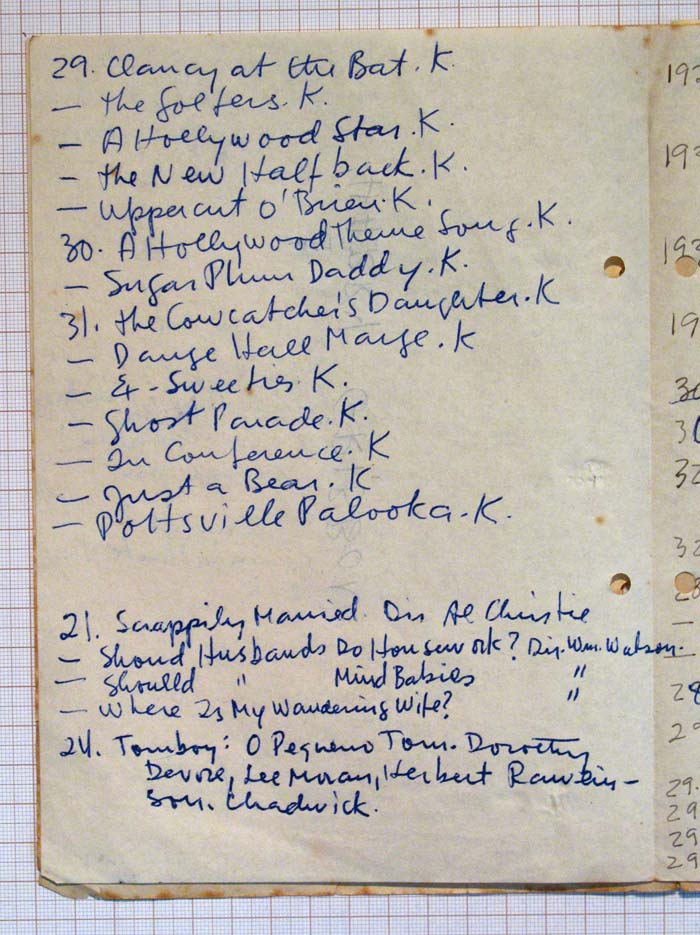 29. Clancy at the Bat. K.
— The Golfers. K.
— A Hollywood Star. K.
— The New Halfback. K.
— Uppercut O'Brien. K.
30. A Hollywood Theme Song. K.
— Sugar Plum Daddy. K.
31. The Cowcatcher's Daughter. K
— Dance Hall Marge. K
— Ex-Sweeties. K.
— Ghost Parade. K.
— In Conference. K
— Just a Bear. K
— Pottsville Palooka. K.
21. Scrappily Married. Dir Al Christie
— Should Husbands Do Housework? Dir. Wm. Watson.
— Should " Mind Babies "
— Where Is My Wandering Wife? "
24. Tomboy: O Pequeno Tom. Dorothy
Devore, Lee Moran, Herbert Rawlin-
son. Chadwick.
193
19
30
31
32
32
28
—
—
28
29
29.
29
29
29